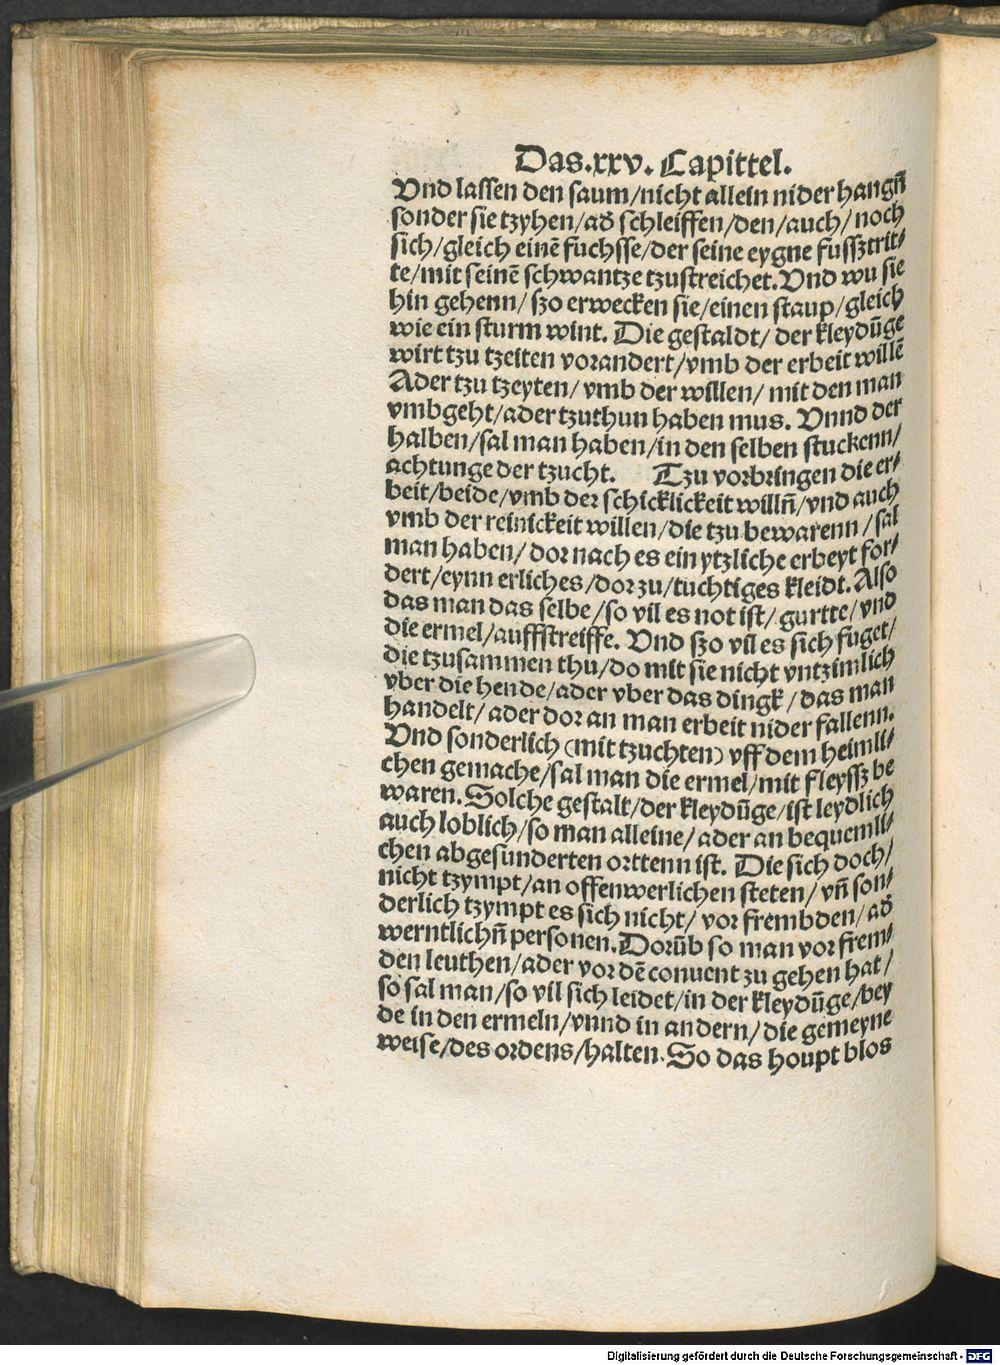 Das.xxv. Capittel.
Vnd lassen den saum/nicht allein nider hangn̄
sonder sie tzyhen/ad̓ schleiffen/den/auch/noch
sich/gleich einē fuchsse/der seine eygne fussztrit⸗
te/mit seinē schwantze tzustreichet. Vnd wu sie
hin gehenn/ szo erwecken sie/einen staup/gleich
wie ein sturm wint. Die gestaldt/ der kleydūge
wirt tzu tzeiten vorandert/vmb der erbeit willē
Ader tzu tzeyten/ vmb der willen/ mit den man
vmbgeht/ader tzuthun haben mus. Vnnd der
halben/sal man haben/in den selben stuckenn/
achtunge der tzucht. Tzu vorbringen die er⸗
beit/beide/vmb der schicklickeit willn̄/vnd auch
vmb der reinickeit willen/die tzu bewarenn/sal
man haben/ dor nach es ein ytzliche erbeyt for⸗
dert/eynn erliches/dor zu/tuchtiges kleidt. Also
das man das selbe/so vil es not ist/ gurtte/vnd
die ermel/auffstreiffe. Vnd szo vil es sich fuget/
die tzusammen thu/do mit sie nicht vntzimlich
vber die hende/ader vber das dingk/das man
handelt/ ader dor an man erbeit nider fallenn.
Vnd sonderlich (mit tzuchten) vff dem heimli⸗
chen gemache/sal man die ermel/mit fleyssz be
waren. Solche gestalt/der kleydūge/ist leydlich
auch loblich/so man alleine/ ader an bequemli⸗
chen abgesunderten orttenn ist. Die sich doch/
nicht tzympt/an offenwerlichen steten/ vn̄ son⸗
derlich tzympt es sich nicht/ vor frembden/ ad̓
werntlichn̄ personen. Dorūb so man vor frem⸗
den leuthen/ader vor dē conuent zu gehen hat/
so sal man/so vil sich leidet/in der kleydūge/bey
de in den ermeln/vnnd in andern/die gemeyne
weise/des ordens/halten. So das houpt blos
Digitalisierung gefördert durch die Deutsche Forschungsgemeinschaft - DFG